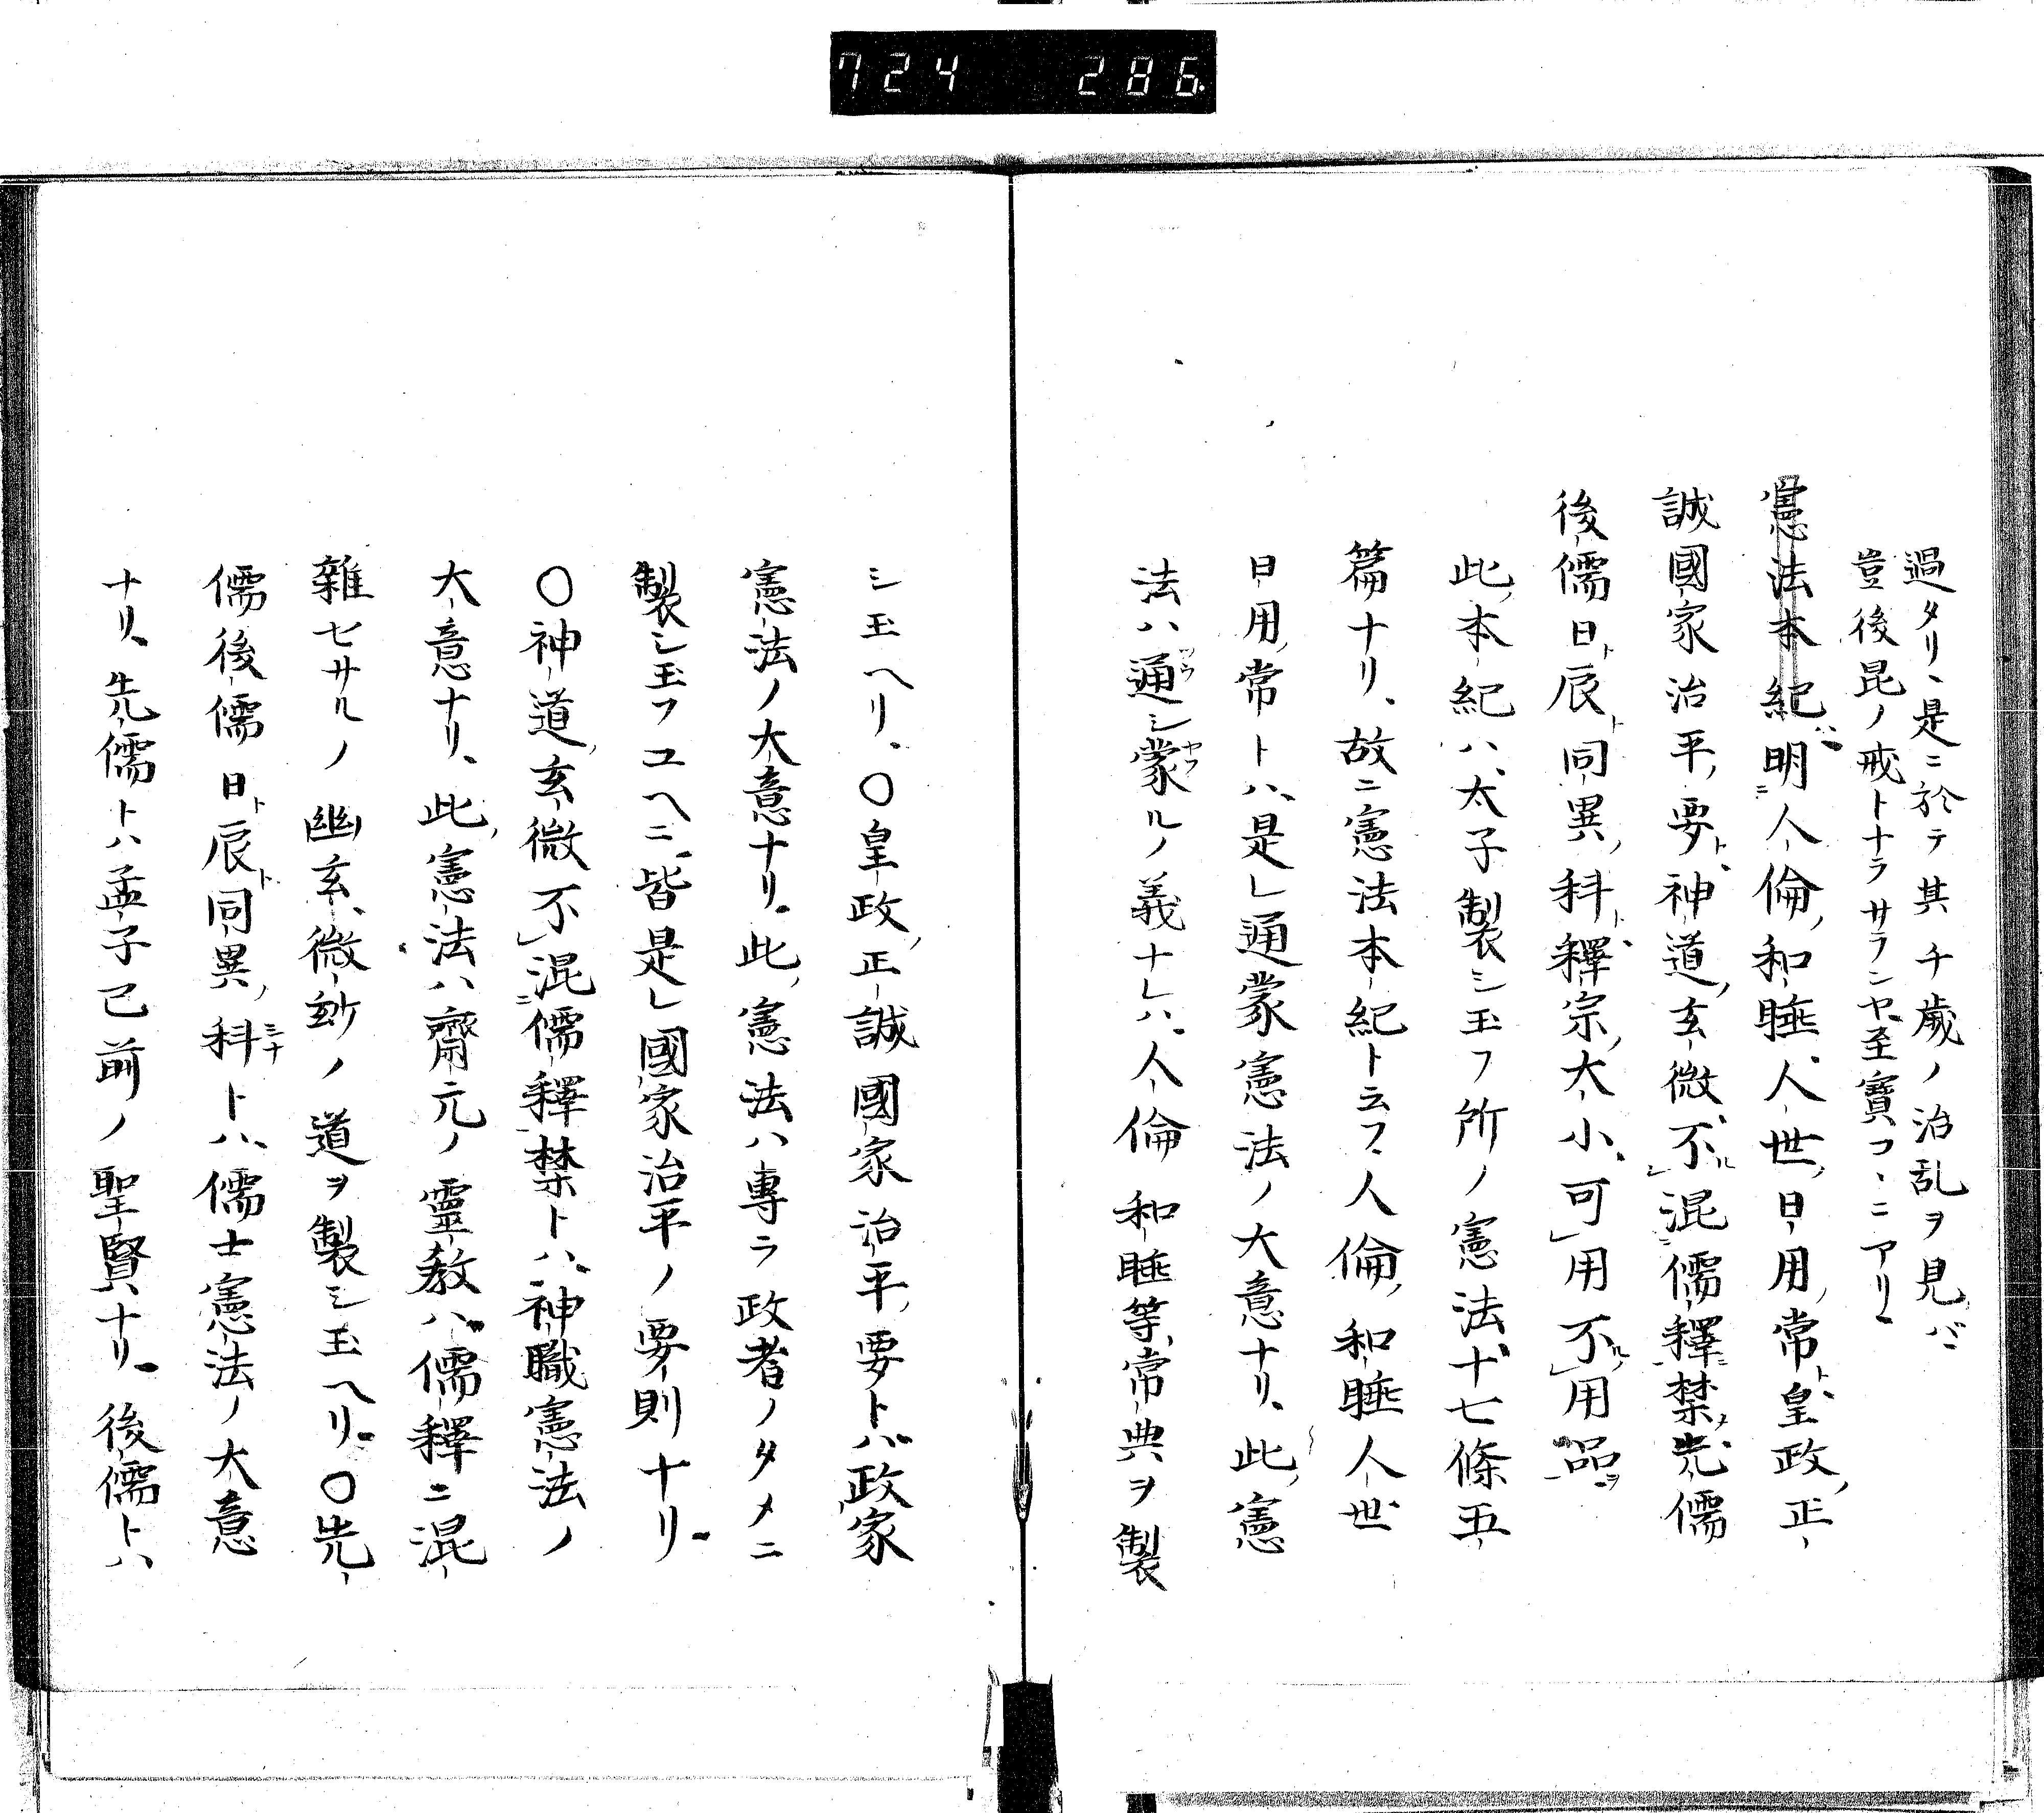 724 286
過タリ、是ニ於テ其千歳ノ治乱ヲ見バ
豈後昆ノ戒トナラサランヤ、至寶コヽニアリ
憲法本紀ハ明ニ人倫和睦、人世日用常ト、皇政正
誠國家治平要ト、神道玄微不ルレ混ニ儒釋ニ禁、先儒
後儒日ト辰ト同異科ト、釋宗大小、可レ用不ルレ用品ヲ
此本紀ハ、太子製シ玉フ所ノ憲法、十七條五
篇ナリ、故ニ憲法本紀ト云フ、人倫和睦人世
日用常トハ、是レ通蒙憲法ノ大意ナリ、此憲
法ハ通ツウシ蒙ヤフルノ義ナレハ、人倫和睦等常典ヲ製
シ玉ヘリ、〇皇政正誠國家治平要トハ、政家
憲法ノ大意ナリ、此憲法ハ專ラ政者ノタメニ
製シ玉フユヘニ、皆是レ國家治平ノ要則ナリ
〇神道玄微不レ混ニ儒釋禁トハ、神職憲法ノ
大意ナリ、此憲法ハ齋元ノ靈教ハ、儒釋ニ混
雜セサルノ幽玄、微玅ノ道ヲ製シ玉ヘリ、〇先
儒後儒日ト辰ト同異科ミナトハ、儒士憲法ノ大意
ナリ、先儒トハ孟子已前ノ聖賢ナリ、後儒トハ